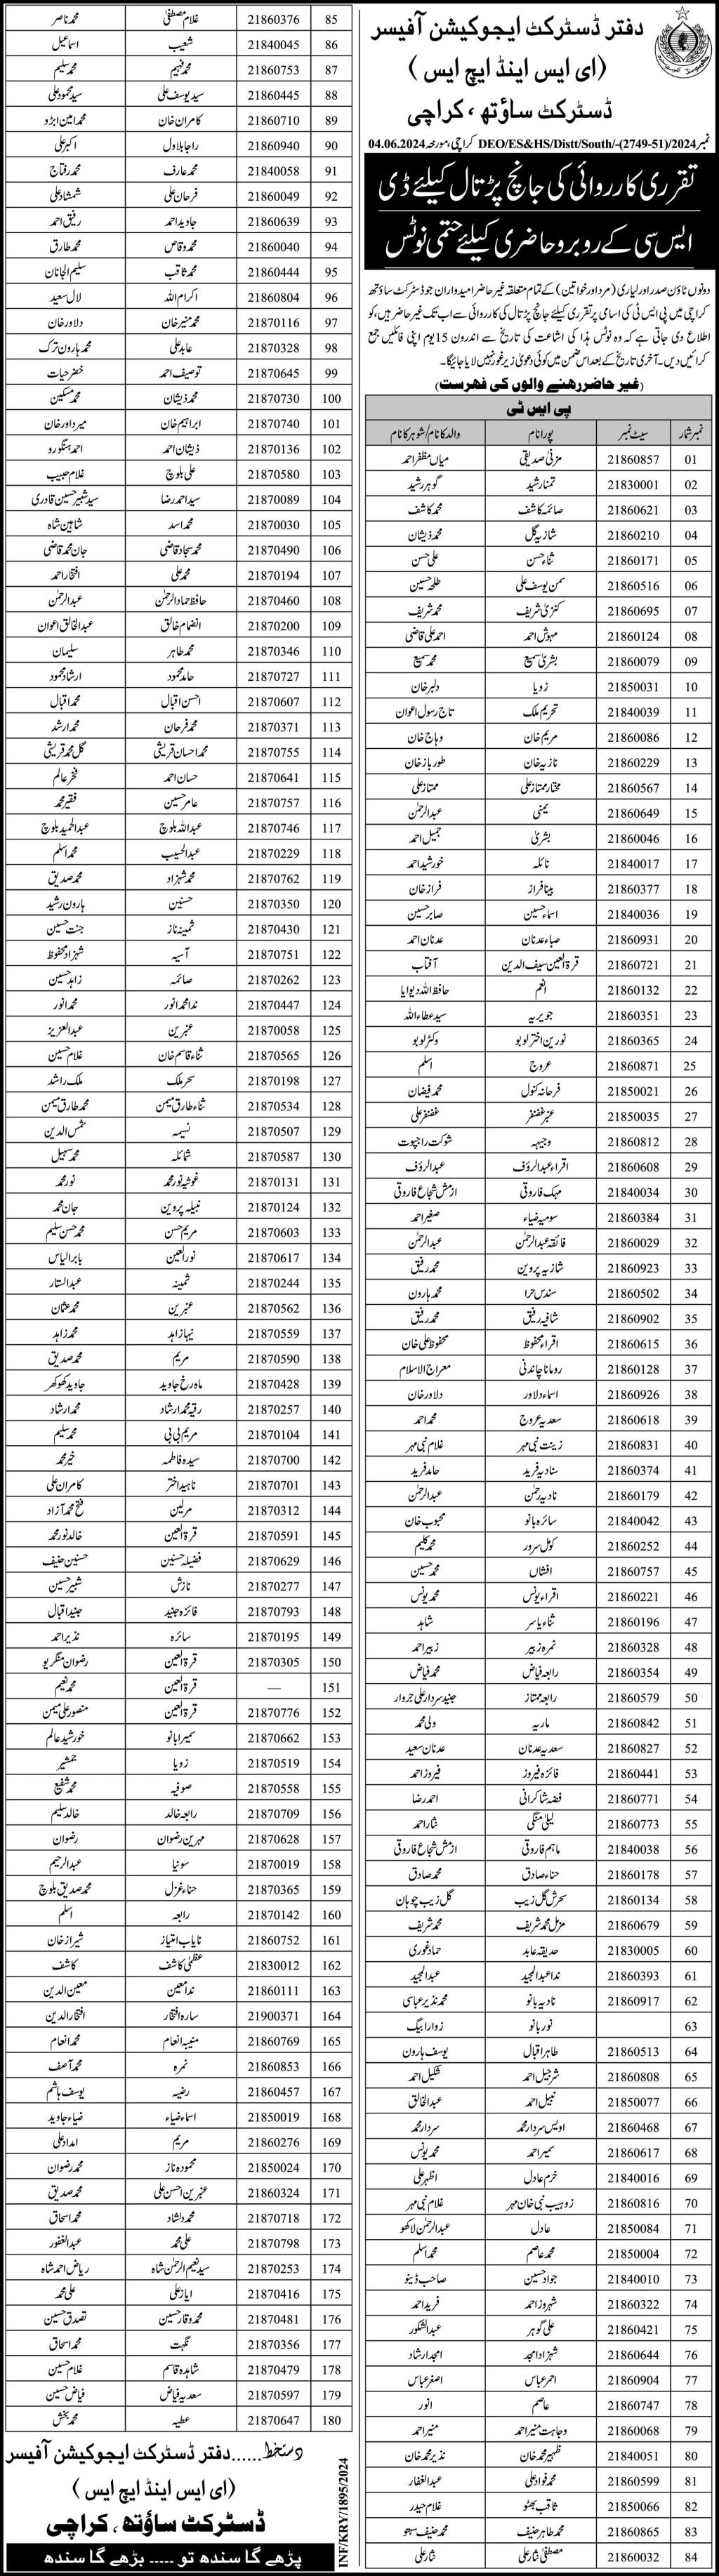 دفتر ڈسٹرکٹ ایجوکیشن آفیسر
(ای ایس اینڈ ایچ ایس)
ڈسٹرکٹ ساؤتھ، کراچی
نمبر DEO/ES&HS/Distt/South/-(2749-51)/2024 کراچی، مورخہ 04.06.2024
تقرری کارروائی کی جانچ پڑتال کیلئے ڈی
ایس سی کے روبرو حاضری کیلئے حتمی نوٹس
دونوں ٹاؤن صدر اور لیاری (مرد اور خواتین) کے تمام متعلقہ غیر حاضر امیدواران جو ڈسٹرکٹ ساؤتھ
کراچی میں پی ایس ٹی کی اسامی پر تقرری کیلئے جانچ پڑتال کی کارروائی سے اب تک غیر حاضر ہیں، کو
اطلاع دی جاتی ہے کہ وہ نوٹس ہذا کی اشاعت کی تاریخ سے اندرون 15 یوم اپنی فائلیں جمع
کرائیں دیں۔ آخری تاریخ کے بعد اس ضمن میں کوئی دعویٰ زیر غور نہیں لایا جائیگا۔
(غیر حاضر رہنے والوں کی فہرست)
پی ایس ٹی
نمبر شمار سیٹ نمبر پورا نام والد کا نام/شوہر کا نام
01 21860857 مزنیٰ صدیقی میاں مظفر احمد
02 21830001 تمنا رشید گوہر رشید
03 21860621 صائمہ کاشف محمد کاشف
04 21860210 شازیہ گل محمد ذیشان
05 21860171 ثناء حسن علی حسن
06 21860516 سمن یوسف علی طلحہ حسین
07 21860695 کنزیٰ شریف محمد شریف
08 21860124 مہوش احمد احمد علی قاضی
09 21860079 بشریٰ سمیع محمد سمیع
10 21850031 زویا دلبر خان
11 21840039 تحریم ملک تاج رسول اعوان
12 21860086 مریم خان وہاج خان
13 21860229 نازیہ خان طور باز خان
14 21860567 مختار ممتاز علی ممتاز علی
15 21860649 یمنیٰ عبدالرحمٰن
16 21860046 بشریٰ جمیل احمد
17 21840017 نائلہ خورشید احمد
18 21860377 بینا فراز فراز خان
19 21840036 اسماء حسین صابر حسین
20 21860931 صباء عدنان عدنان احمد
21 21860721 قرۃ العین سیف الدین آفتاب
22 21860132 انعم حافظ اللہ دیوایا
23 21860351 جویریہ سید عطاء اللہ
24 21860365 نورین اختر لوبو وکٹر لوبو
25 21860871 عروج اسلم
26 21850021 فرحانہ کنول محمد فیضان
27 21850035 عنبر غضنفر غضنفر علی
28 21860812 وجیہہ شوکت راجپوت
29 21860608 اقراء عبدالرؤف عبدالرؤف
30 21840034 مہک فاروقی ازمش شجاع فاروقی
31 21860384 سومیہ ضیاء صغیر احمد
32 21860029 فائقہ عبدالرحمٰن عبدالرحمٰن
33 21860923 شازیہ پروین محمد رفیق
34 21860502 سندس حرا محمد ہارون
35 21860902 شافیہ رفیق محمد رفیق
36 21860615 اقراء محفوظ محفوظ علی خان
37 21860128 رومانا چاندنی معراج الاسلام
38 21860926 اسماء دلاور دلاور خان
39 21860618 سعدیہ عروج محمد احمد
40 21860831 زینت نبی مہر غلام نبی مہر
41 21860374 سنادیہ فرید حامد فرید
42 21860179 نادیہ رحمٰن عبدالرحمٰن
43 21840042 سائرہ بانو محبوب خان
44 21860252 کومل سرور محمد کلیم
45 21860757 افشاں محمد حسین
46 21860221 اقراء یونس محمد یونس
47 21860196 ثناء یاسر شاہد
48 21860328 نمرہ زبیر زبیر احمد
49 21860354 رابعہ فیاض محمد فیاض
50 21860579 رابعہ ممتاز جنید سردار علی جروار
51 21860842 ماریہ ولی محمد
52 21860827 سعدیہ عدنان عدنان سعید
53 21860441 فائزہ فیروز فیروز احمد
54 21860771 فضہ شاکرانی احمد رضا
55 21860773 لیلیٰ منگی نثار احمد
56 21840038 ماہم فاروقی ازمش شجاع فاروقی
57 21860178 حناء صادق محمد صادق
58 21860134 سحرش گل زیب گل زیب چوہان
59 21860679 مزمل محمد شریف محمد شریف
60 21830005 حدیقہ عابد حماد غوری
61 21860393 ندا عبدالمجید عبدالمجید
62 21860917 نادیہ بانو محمد نذیر عباسی
63 نور بانو زوار ابیگ
64 21860513 طاہر اقبال یوسف ہارون
65 21860808 شرجیل احمد شکیل احمد
66 21850077 نبیل احمد عبدالخالق
67 21860468 اویس سردار محمد سردار محمد
68 21860617 سمیر احمد محمد یونس
69 21840016 خرم عادل اظہر علی
70 21860816 زوہیب نبی خان مہر غلام نبی مہر
71 21850084 عادل عبدالرحمٰن لاکھو
72 21850004 محمد عاصم محمد اسلم
73 21840010 جواد حسین صاحب ڈینو
74 21860322 شہروز احمد فرید احمد
75 21860421 علی گوہر عبدالشکور
76 21860644 شہزاد امجد امجد ارشاد
77 21860904 احمر عباس اصغر عباس
78 21860747 عاصم انور
79 21860068 وجاہت منیر احمد منیر احمد
80 21840051 ظہیر محمد خان نذیر محمد خان
81 21860599 محمد فواد علی عبدالغفار
82 21850066 ثاقب بھٹو غلام حیدر
83 21860865 محمد طاہر حنیف محمد حنیف سہتو
84 21860032 مصطفیٰ نثار علی نثار علی
85 21860376 غلام مصطفیٰ محمد ناصر
86 21840045 شعیب اسماعیل
87 21860753 محمد فہیم محمد سلیم
88 21860445 سید یوسف علی سید محمود علی
89 21860710 کامران خان محمد امین ابڑو
90 21860940 راجا بلاول اکبر علی
91 21840058 محمد عارف محمد رفتاج
92 21860049 فرحان علی شمشاد علی
93 21860639 جاوید احمد رفیق احمد
94 21860040 محمد وقاص محمد طارق
95 21860444 محمد ثاقب سلیم الجانان
96 21860804 اکرام اللہ لال سعید
97 21870116 محمد منیر خان دلاور خان
98 21870328 عابد علی محمد ہارون ترک
99 21870645 توصیف احمد خضر حیات
100 21870730 محمد ذیشان محمد مسکین
101 21870740 ابراہیم خان میرداور خان
102 21870136 ذیشان احمد احمد ہنگورو
103 21870580 علی بلوچ غلام حبیب
104 21870089 سید احمد رضا سید شبیر حسین قادری
105 21870030 محمد اسد شاہین شاہ
106 21870490 محمد سجاد قاضی جان محمد قاضی
107 21870194 محمد علی افتخار احمد
108 21870460 حافظ حماد الرحمٰن عبدالرحمٰن
109 21870200 انضمام خالق عبدالخالق اعوان
110 21870346 محمد طاہر سلیمان
111 21870727 حامد محمود ارشاد محمود
112 21870607 احسن اقبال محمد اقبال
113 21870371 محمد فرحان محمد ارشد
114 21870755 محمد احسان قریشی گل محمد قریشی
115 21870641 حسان احمد فخر عالم
116 21870757 عامر حسین فقیر محمد
117 21870746 عبداللہ بلوچ عبدالحمید بلوچ
118 21870229 عبدالحسیب محمد اسلم
119 21870762 محمد شہزاد محمد صدیق
120 21870350 حسنین ہارون رشید
121 21870430 ثمینہ ناز جنت حسین
122 21870751 آسیہ شہزاد محفوظ
123 21870262 صائمہ زاہد حسین
124 21870447 ندا محمد انور محمد انور
125 21870058 عنبرین عبدالعزیز
126 21870565 ثناء قاسم خان غلام حسین
127 21870198 سحر ملک ملک راشد
128 21870534 ثناء طارق میمن محمد طارق میمن
129 21870507 نسیمہ شمس الدین
130 21870587 شمائلہ محمد سہیل
131 21870131 غوثیہ نور محمد نور محمد
132 21870124 نبیلہ پروین جان محمد
133 21870603 مریم حسن محمد حسن سلیم
134 21870617 نور العین بابر الیاس
135 21870244 ثمینہ عبدالستار
136 21870562 عنبرین محمد عثمان
137 21870559 نیہا زاہد محمد زاہد
138 21870590 مریم محمد صدیق
139 21870428 ماہ رخ جاوید جاوید کھوکھر
140 21870257 رقیہ محمد ارشاد محمد ارشاد
141 21870104 مریم بی بی محمد سلیم
142 21870700 سیدہ فاطمہ خیر محمد
143 21870701 ناہید اختر کامران علی
144 21870312 مرلین فتح محمد آزاد
145 21870591 قرۃ العین خالد نور محمد
146 21870629 فضیلہ حسنین حسنین حنیف
147 21870277 نازش شبیر حسین
148 21870793 فائزہ جنید جنید اقبال
149 21870195 سائرہ نذیر احمد
150 21870305 قرۃ العین رضوان منگریو
151 — قرۃ العین محمد نعیم
152 21870776 قرۃ العین منصور علی میمن
153 21870662 سمیرا بانو خورشید عالم
154 21870519 زویا جمشیر
155 21870558 صوفیہ محمد شفیع
156 21870709 رابعہ خالد خالد سلیم
157 21870628 مہرین رضوان رضوان
158 21870019 سونیا عبدالرحیم
159 21870365 حناء غزل محمد صدیق بلوچ
160 21870142 رابعہ اسلم
161 21860752 نایاب امتیاز شیراز خان
162 21830012 عظمیٰ کاشف کاشف
163 21860111 ندا معین معین الدین
164 21900371 سارہ افتخار افتخار الدین
165 21860769 منیبہ انعام محمد انعام
166 21860853 نمرہ محمد آصف
167 21860457 رضیہ یوسف ہاشم
168 21850019 اسماء ضیاء ضیاء جاوید
169 21860276 مریم امداد علی
170 21850024 محمودہ ناز محمد رضوان
171 21860324 عنبرین احسن علی محمد صدیق
172 21870718 محمد دلشاد محمد اسحاق
173 21870798 علی محمد عبدالغفور
174 21870253 سید نعیم الرحمٰن شاہ ریاض احمد شاہ
175 21870416 ایاز علی علی محمد
176 21870481 محمد وقار حسین تصدق حسین
177 21870356 نگہت محمد اسحاق
178 21870479 شاہدہ قاسم غلام حسین
179 21870597 سعدیہ فیاض فیاض حسین
180 21870647 عطیہ محمد بخش
دستخط......دفتر ڈسٹرکٹ ایجوکیشن آفیسر
(ای ایس اینڈ ایچ ایس)
ڈسٹرکٹ ساؤتھ، کراچی
پڑھے گا سندھ تو ..... بڑھے گا سندھ
INF/KRY/1895/2024